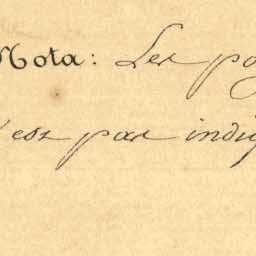 Nota: Les po
'est pas indiq